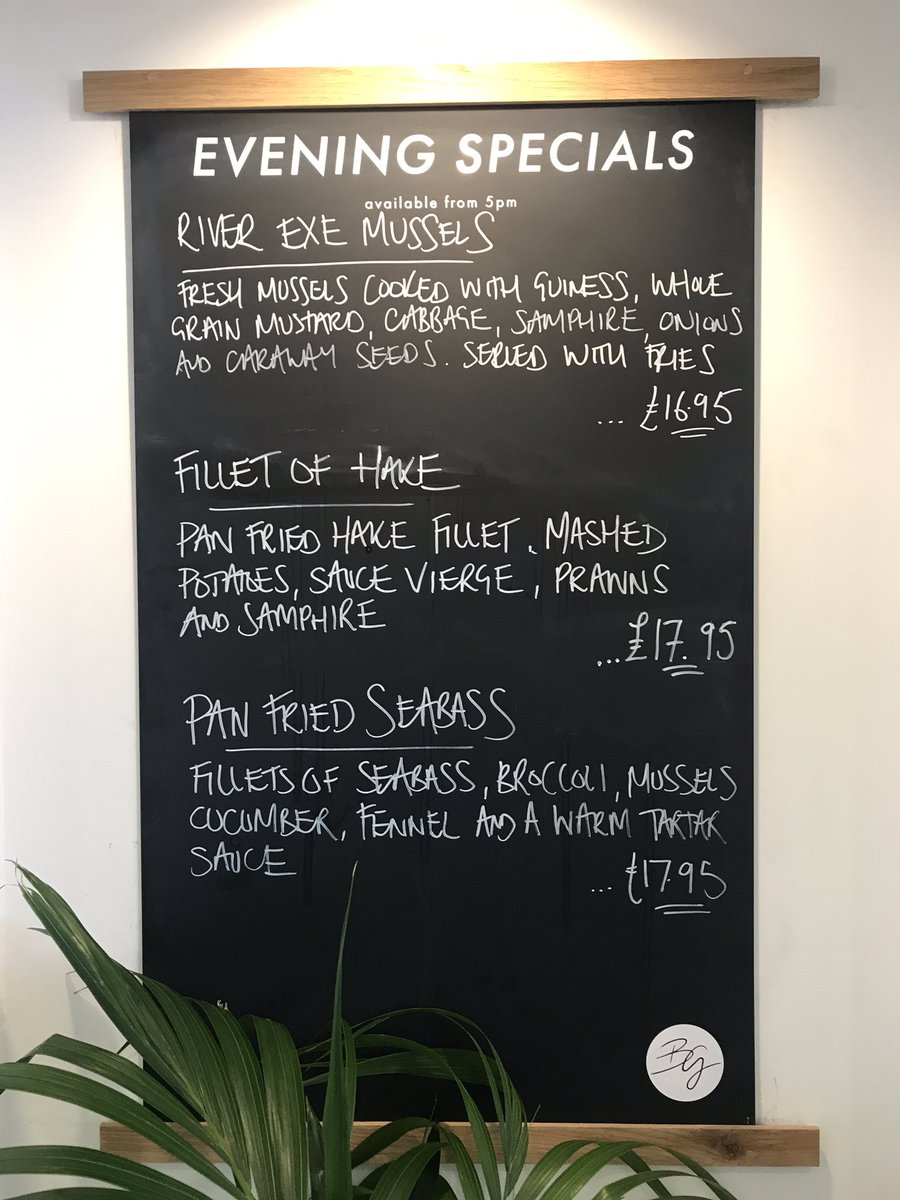 EVENING SPECIALS
available from 5pm
RIVER EXE MUSSELS
FRESH MUSSELS COOKED WITH GUINESS, WHOLE
GRAIN MUSTARD, CABBAGE, SAMPHIRE, ONIONS
AND CARAWAY SEEDS. SERVED WITH FRIES
... £16.95
FILLET OF HAKE
PAN FRIED HAKE FILLET, MASHED
POTATOES, SAUCE VIERGE, PRAWNS
AND SAMPHIRE
... £17.95
PAN FRIED SEABASS
FILLETS OF SEABASS, BROCCOLI, MUSSELS
CUCUMBER, FENNEL AND A WARM TARTAR
SAUCE
... £17.95
BG